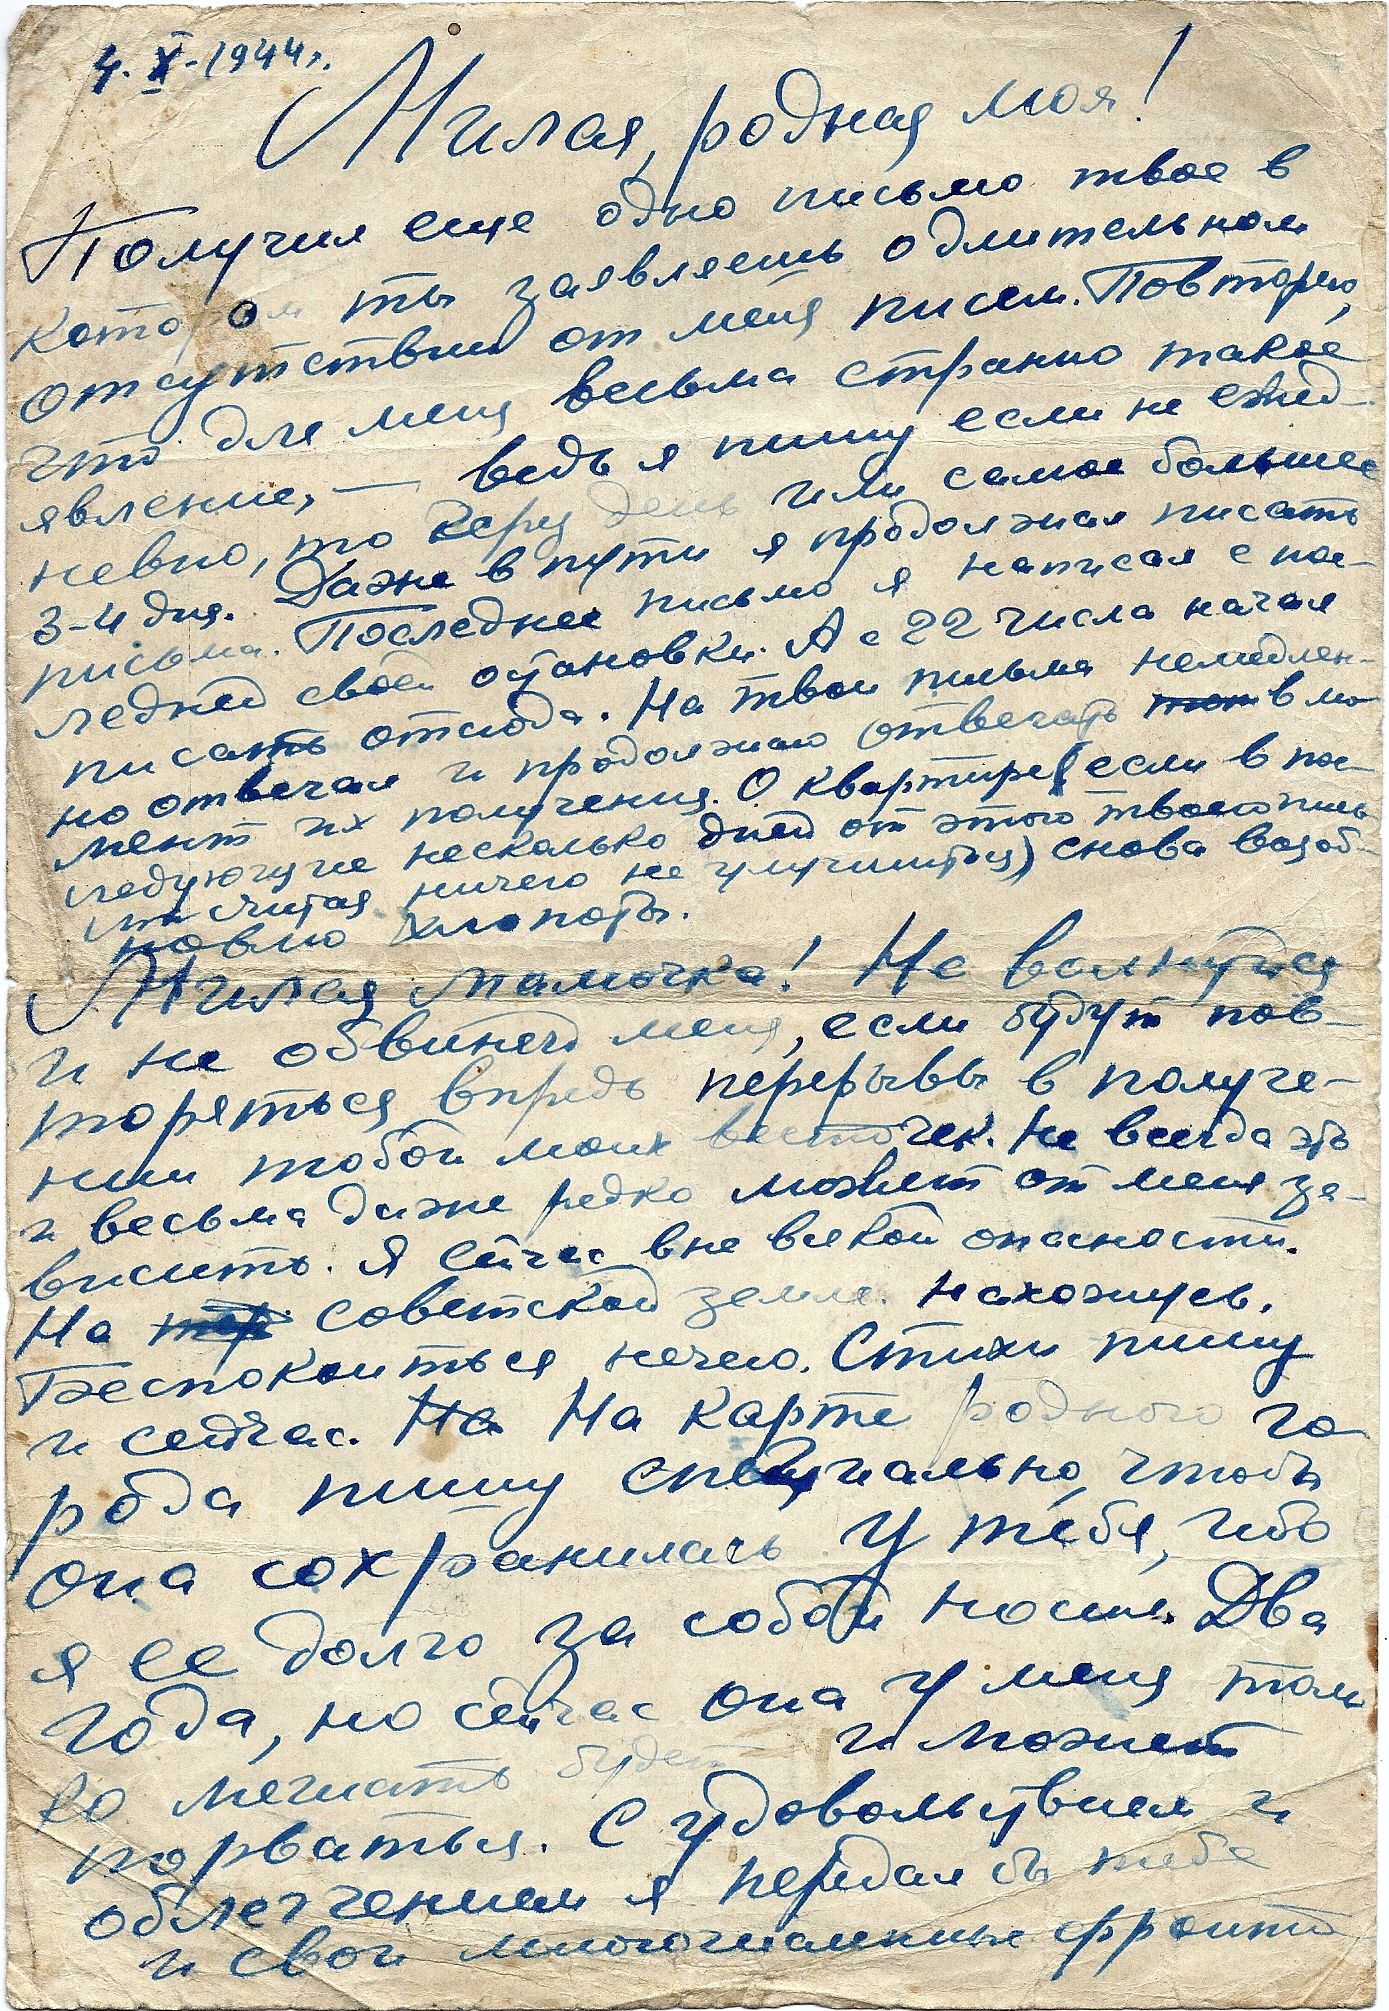 4. X-1944г.
Милая, родная моя!
Получил еще одно письмо твое в
котором ты заявляешь о длительном
отсутствии от меня писем. Повторяю,
что для меня весьма странно такое
явление, — ведь я пишу если не ежед-
невно, то через день или самое большее
3-4 дня. Даже в пути я продолжал писать
письма. Последнее письмо я написал с пос-
ледней своей остановки. А с 22 числа начал
писать отсюда. На твои письма немедлен-
но отвечал и продолжаю отвечать в мо-
мент их получения. О квартире (если в пос-
ледующие несколько дней от этого твоего пись-
ма считая ничего не улучшиться) снова возоб-
новлю хлопоты.
Милая мамочка! Не волнуйся
и не обвиняй меня, если будут пов-
торяться впредь перерывы в получе-
нии тобой моих весточек. Не всегда это
и весьма даже редко может от меня за-
висить. Я сейчас вне всякой опасности.
На советской земле нахожусь.
Беспокоиться нечего. Стихи пишу
и сейчас. На На карте родного го-
рода пишу специально, чтобы
она сохранилась у тебя, ибо
я ее долго за собой носил. Два
года, но сейчас она у меня толь
ко мешать будет и может
порваться. С удовольствием и
облегчением я передал бы тебе
и свои многочисленные фронто